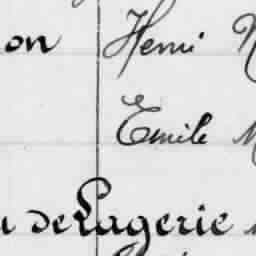 on Henri
Emile
de Lagerie